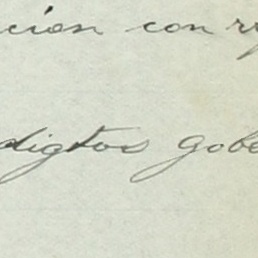 cion con r
digtos gobe